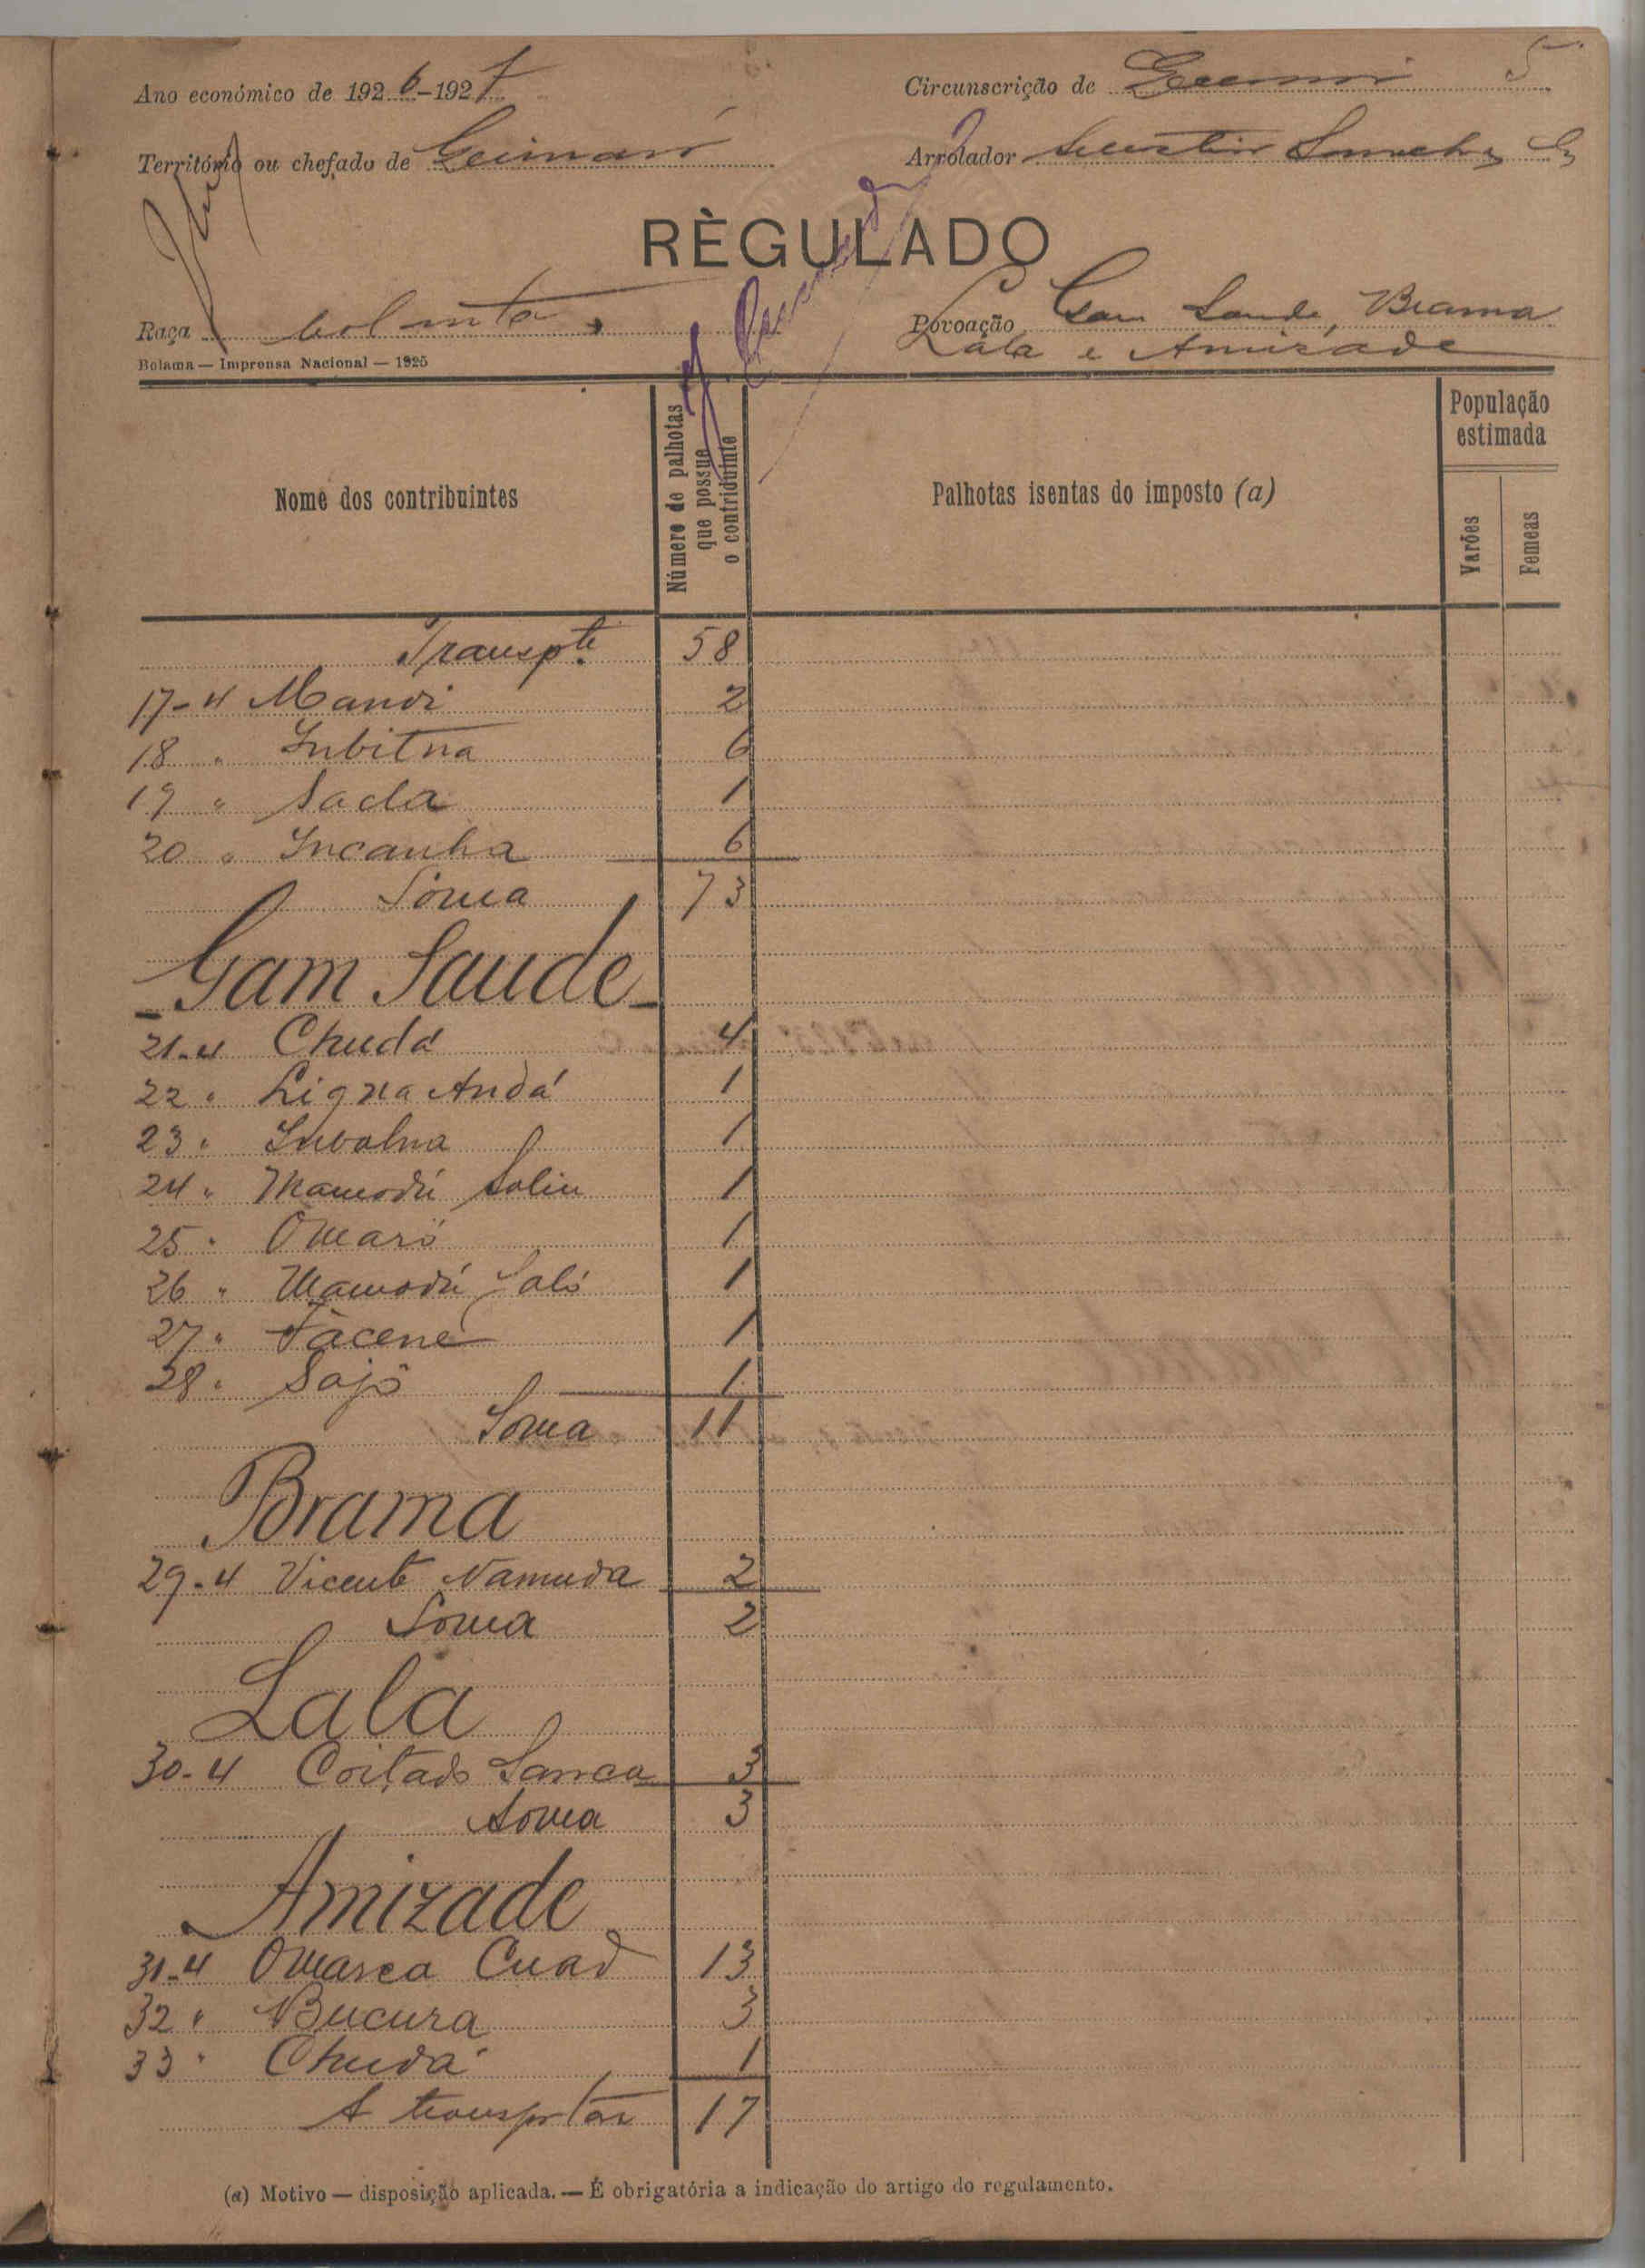 Ano económico de 1926-1927 Circunscrição de 5
Território ou chefado de Arrolador
RÈGULADO
Raça Povoação Gam Saude, Brama
Lala e Amizade
Bolama — Imprensa Nacional — 1925
Nome dos contribuintes Número de palhotas que possue o contriduinte Palhotas isentas do imposto (a) População estimada
Varões Femeas
Transpte 58
17-4 Mandi 2
18 " Inbitna 6
19 " Sacla 1
20 " Incanha 6
Sôma 73
Gam Saude
21-4 Chudá 4
22 " Ligna Andá 1
23 " 1
24 " Mamodú Saliu 1
25 " Omaró 1
26 " Mamodú 1
27 " Facené 1
28 " Sajo 1
Soma 11
Brama
29-4 Vicente Namuda 2
Soma 2
Lala
30-4 Coitado Sanca 3
Soma 3
Amizade
31-4 13
32 " Bucura 3
33 " Chudá 1
A transportar 17
(a) Motivo — disposição aplicada. — É obrigatória a indicação do artigo do regulamento.